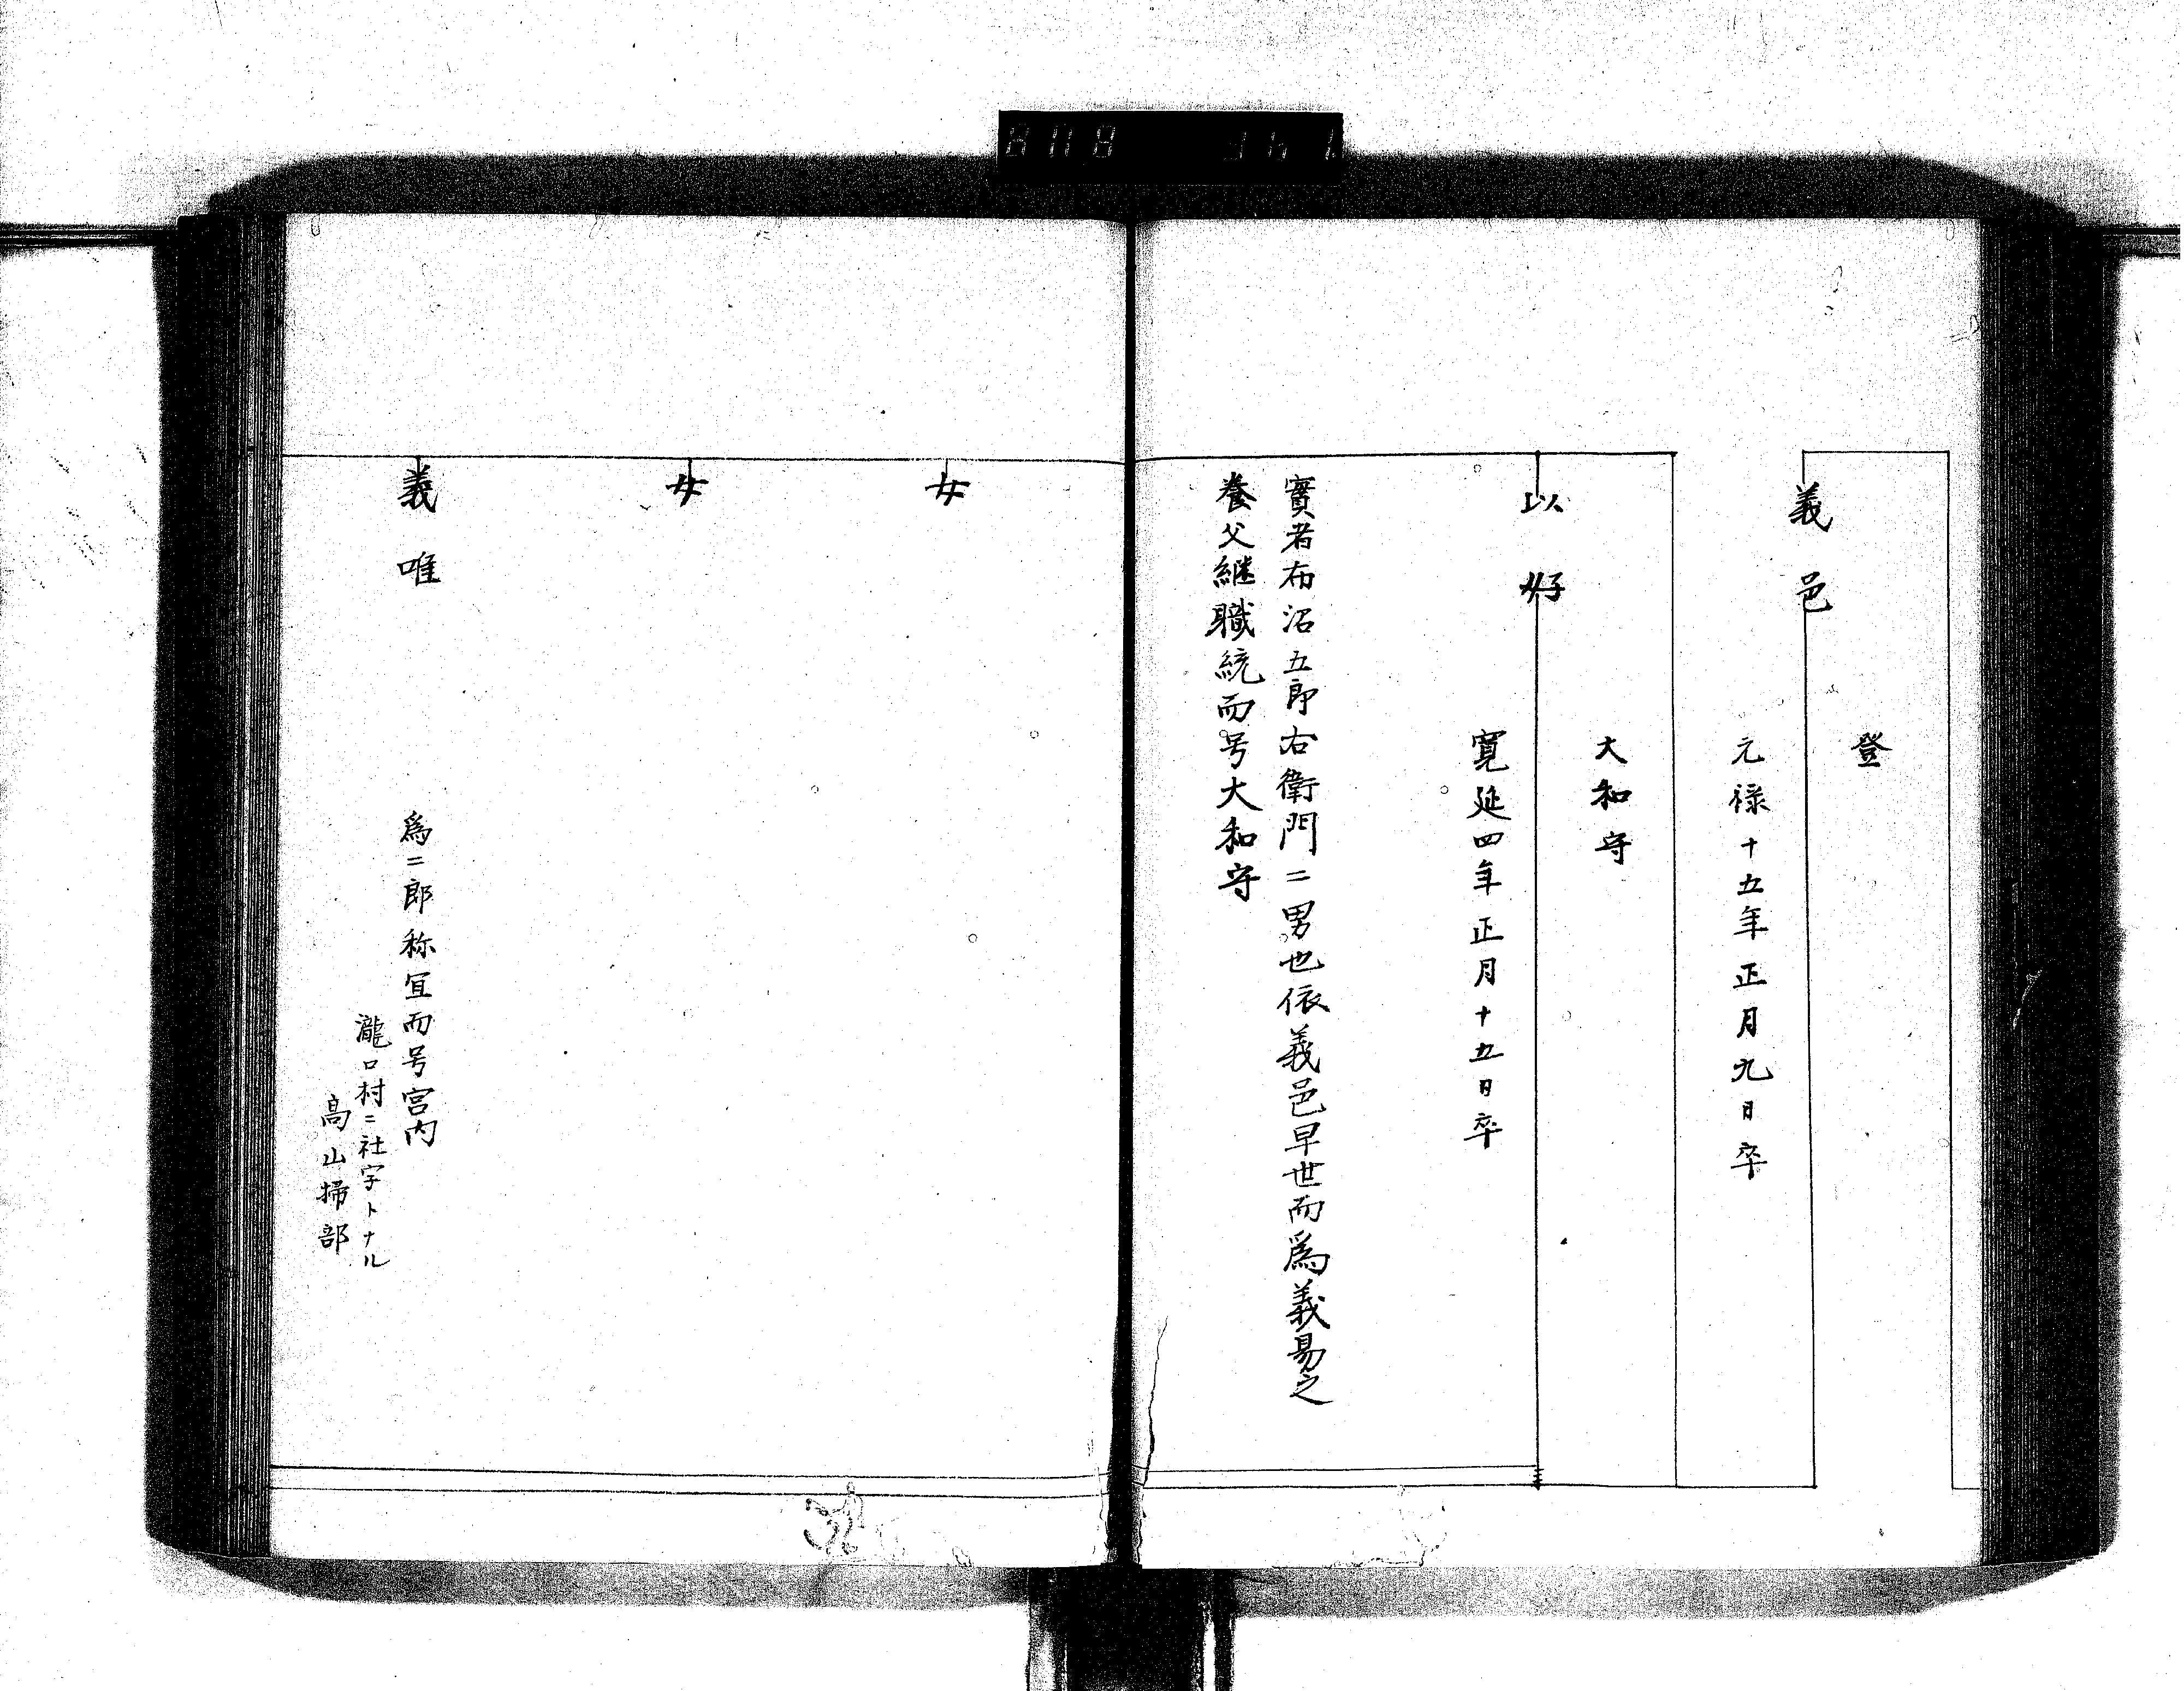 義邑
登
元禄十五年正月九日卒
以好
大和守
寛延四年正月十五日卒
實者布沼五郎右衛門二男也依義邑早世而為義易之
養父継職統而号大和守
女
女
義唯
為二郎称冝而号宮内
瀧口村ニ社字トナル
高山掃部